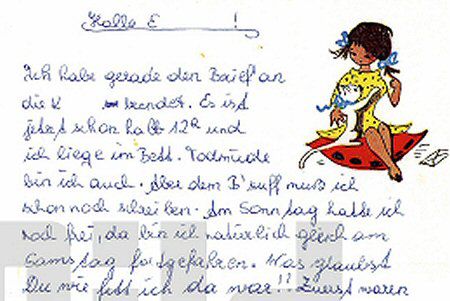 Hallo E !
Ich habe gerade den Brief an
die K beendet. Es ist
jetzt schon halb 12h und
ich liege im Bett. Todmüde
bin ich auch. Aber dem B'suff muß ich
schon noch schreiben. Am Sonntag hatte ich
noch frei, da bin ich natürlich gleich am
Samstag fortgefahren. Was glaubst
Du wie fett ich da war!! Zuerst waren